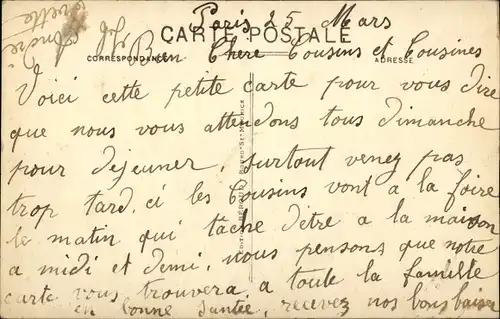 Paris 25 Mars
CARTE POSTALE
CORRESPONDANCE
ADRESSE
Bien Chere Cousins et Cousines
Voici cette petite carte pour vous dire
que nous vous attendons tous dimanche
pour dejeuner, surtout venez pas
trop tard, ci les Cousins vont a la foire
le matin qui tache d'être a la maison
a midi et demi, nous pensons que notre
carte vous trouvera a toute la famille
en bonne santée, recevez nos bons baisers